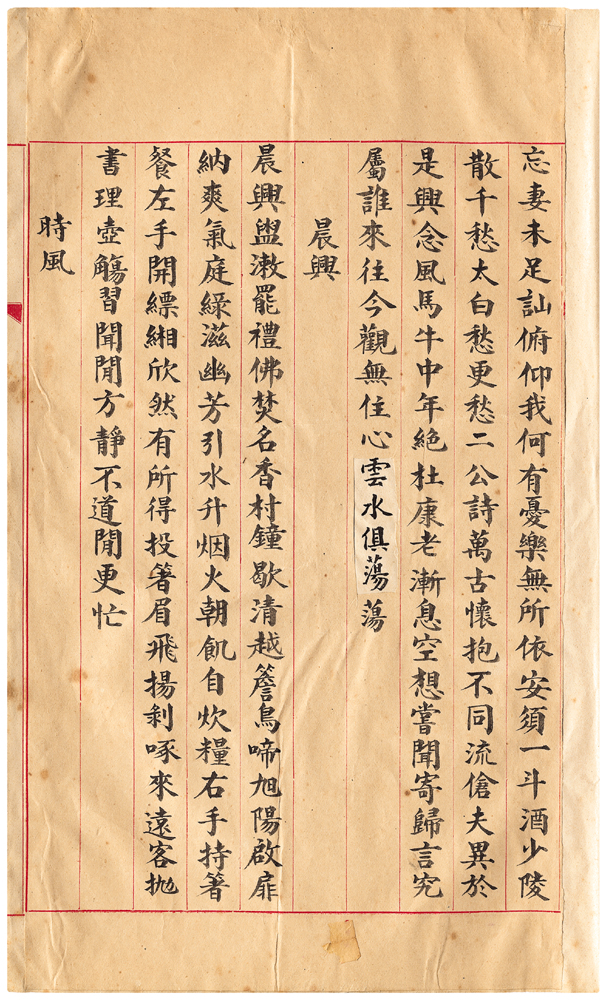 忘妻未足訕俯仰我何有憂樂無所依安須一斗酒少陵
散千愁太白愁更愁二公詩萬古懷抱不同流傖夫異於
是興念風馬牛中年絶杜康老漸息空想嘗聞寄歸言究
屬誰來往今觀無住心雲水俱蕩蕩
晨興
晨興盥漱罷禮佛焚名香村鐘歇清越簷鳥啼旭陽啟扉
納爽氣庭綠滋幽芳引水升烟火朝飢自炊糧右手持箸
餐左手開縹緗欣然有所得投箸眉飛揚剥啄來遠客拋
書理壺觴習聞閒方靜不道閒更忙
時風